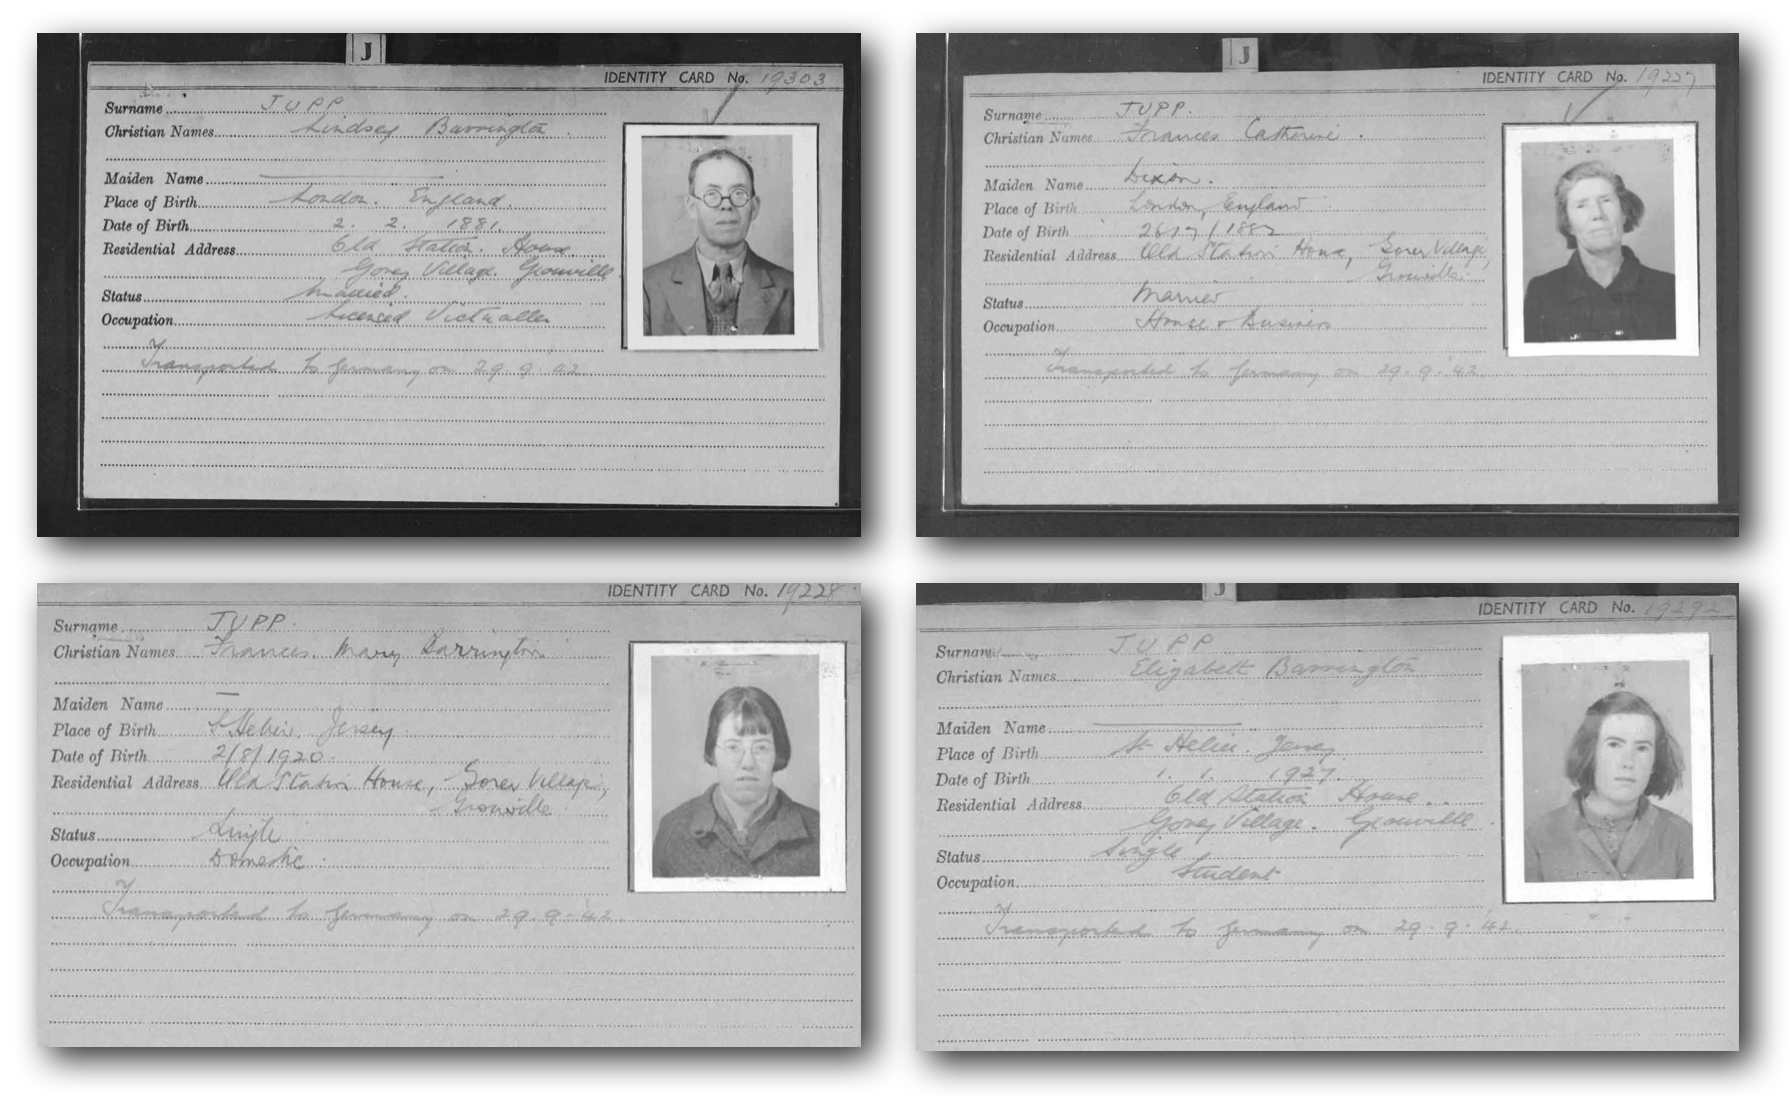 J
IDENTITY CARD No. 19303
Surname JUPP
Christian Names Lindsey Barrington.
Maiden Name
Place of Birth London. England.
Date of Birth 2. 2. 1881.
Residential Address Old Station. House
Gorey Village. Grouville
Status Married.
Occupation Licensed Victualler
Transported to Germany on 29. 9. '42
J
IDENTITY CARD No. 19227
Surname JUPP.
Christian Names Frances Catherine.
Maiden Name Dixon.
Place of Birth London, England
Date of Birth 26/7/1882
Residential Address Old Station House, Gorey Village,
Grouville.
Status Married
Occupation House & Business
Transported to Germany on 29. 9. '42
IDENTITY CARD No. 19228
Surname JUPP.
Christian Names Frances. Mary Barrington
Maiden Name —
Place of Birth St Helier. Jersey
Date of Birth 2/8/1920.
Residential Address Old Station House, Gorey Village,
Grouville
Status Single
Occupation Domestic
Transported to Germany on 29. 9. '42
J
IDENTITY CARD No. 19292
Surname JUPP
Christian Names Elizabeth Barrington
Maiden Name
Place of Birth St Helier. Jersey.
Date of Birth 1. 1. 1927.
Residential Address Old Station House.
Gorey Village. Grouville
Status Single
Occupation Student
Transported to Germany on 29. 9. '42.